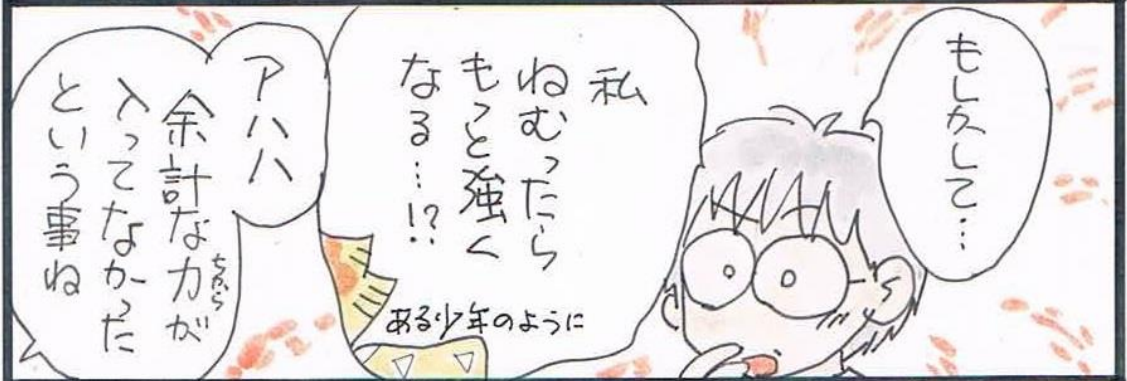 もしかして…
私
ねむったら
もっと強く
なる…!?
ある少年のように
アハハ
余計な力が
ちから
入ってなかった
という事ね